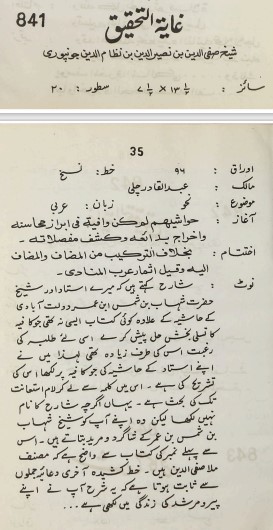 841
غاية التحقيق
شیخ صفی الدین بن نصیر الدین بن نظام الدین جونپوری
سائز : ۱۳½ × ۷½ سطور : ۲۰
35
اوراق : ۹۶ خط : نسخ
مالک : عبدالقادر چلی
موضوع : نحو زبان : عربی
آغاز : حواشیھم لم یرکن وافیة فی ابراز محاسنه
واخراج بدائعه وکشف مفصلاته۔
اختتام : بخلاف الترکیب من المضاف والمضاف
الیه وقیل انما عرب المنادی۔
نوٹ : شارح کہتے ہیں کہ میرے استاد اور شیخ
حضرت شہاب بن شمس ابن عمر دولت آبادی
کے حاشیہ کے علاوہ کوئی کتاب ایسی نہ تھی جو کافیہ
کا تسلی بخش حل پیش کرے اسی لئے طلبہ کی
رغبت اس کی طرف زیادہ تھی لہذا میں نے
اپنے استاد کے حاشیہ کی جو کافیہ پر لکھا اس کی
تشریح کی ہے۔ اس میں کلمہ سے لے کر لام استغاثت
تک کی بحث ہے۔ یہاں اگرچہ شارح کا نام
نہیں لکھا لیکن وہ اپنے آپ کو شیخ شہاب
بن شمس بن عمر کے شاگرد و مرید بتاتے ہیں۔ اس
سے پہلے نمبر کی کتاب سے واضح ہے کہ مصنف
ملا صفی الدین ہیں۔ خط کشیدہ آخری دعائیہ جملوں
سے ثابت ہوتا ہے کہ یہ شرح آپ نے اپنے
پیر و مرشد کی زندگی میں لکھی ہے...